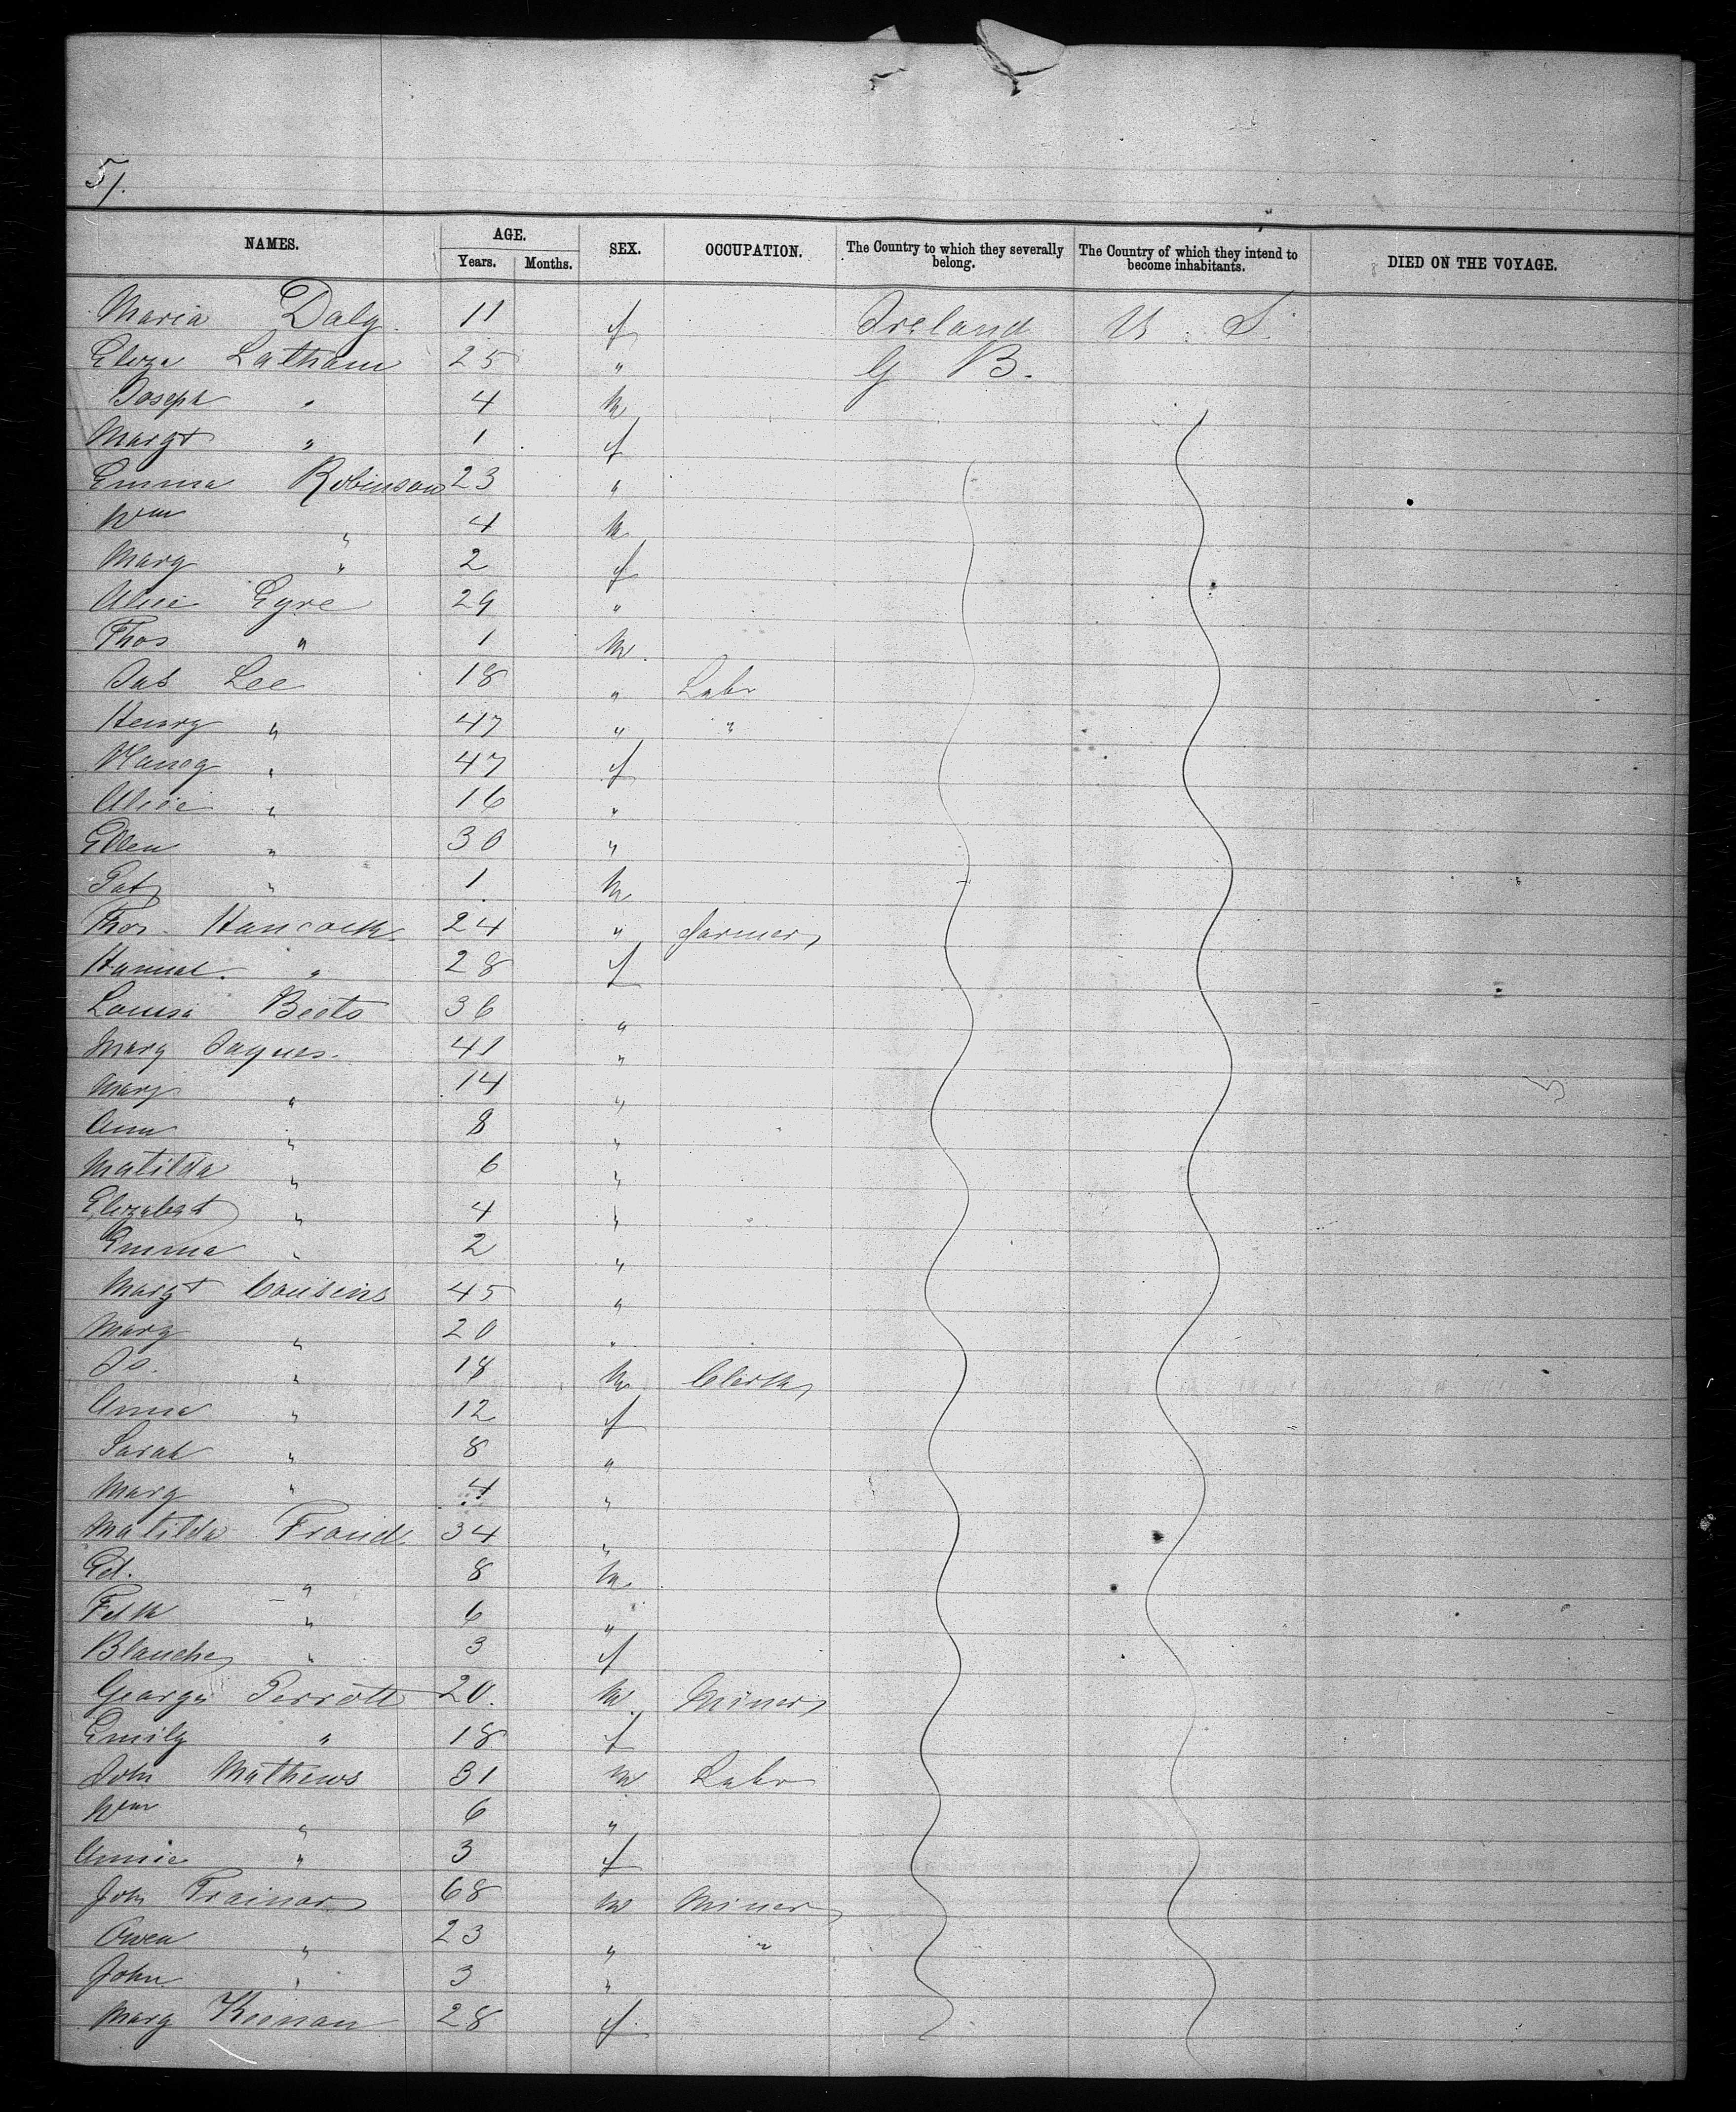 5/.
NAMES. AGE. Years. Months. SEX. OCCUPATION. The Country to which they severally belong. The Country of which they intend to become inhabitants. DIED ON THE VOYAGE.
Maria Daly 11 f Ireland U. S.
Eliza Latham 25 " G B.
Joseph " 4 m
Margt " 1 f
Emma Robinson 23 "
Wm " 4 m
Mary " 2 f
Alice Eyre 29 "
Thos " 1 m
Jas Lee 18 " Labr
Henry " 47 " "
Nancy " 47 f
Alice " 16 "
Ellen " 30 "
Pat " 1 m
Thos. Hancock 24 " farmer
Hannah " 28 f
Louisa Beets 36 "
Mary Jaques. 41 "
Mary " 14 "
Ann " 8 "
Matilda " 6 "
Elizabeth " 4 "
Emma " 2 "
Margt Cousins 45 "
Mary " 20 "
Jo. " 18 m Clerk
Anna " 12 f
Sarah " 8 "
Mary " 4 "
Matilda Froud 34 "
Ed. " 8 m
Fdk " 6 "
Blanche " 3 f
George Perrott 20. m Miner
Emily " 18 f
John Mathews 31 m Labr
Wm " 6 "
Annie " 3 f
John Trainor 68 m Miner
Owen " 23 " "
John " 3 "
Mary Keenan 28 f